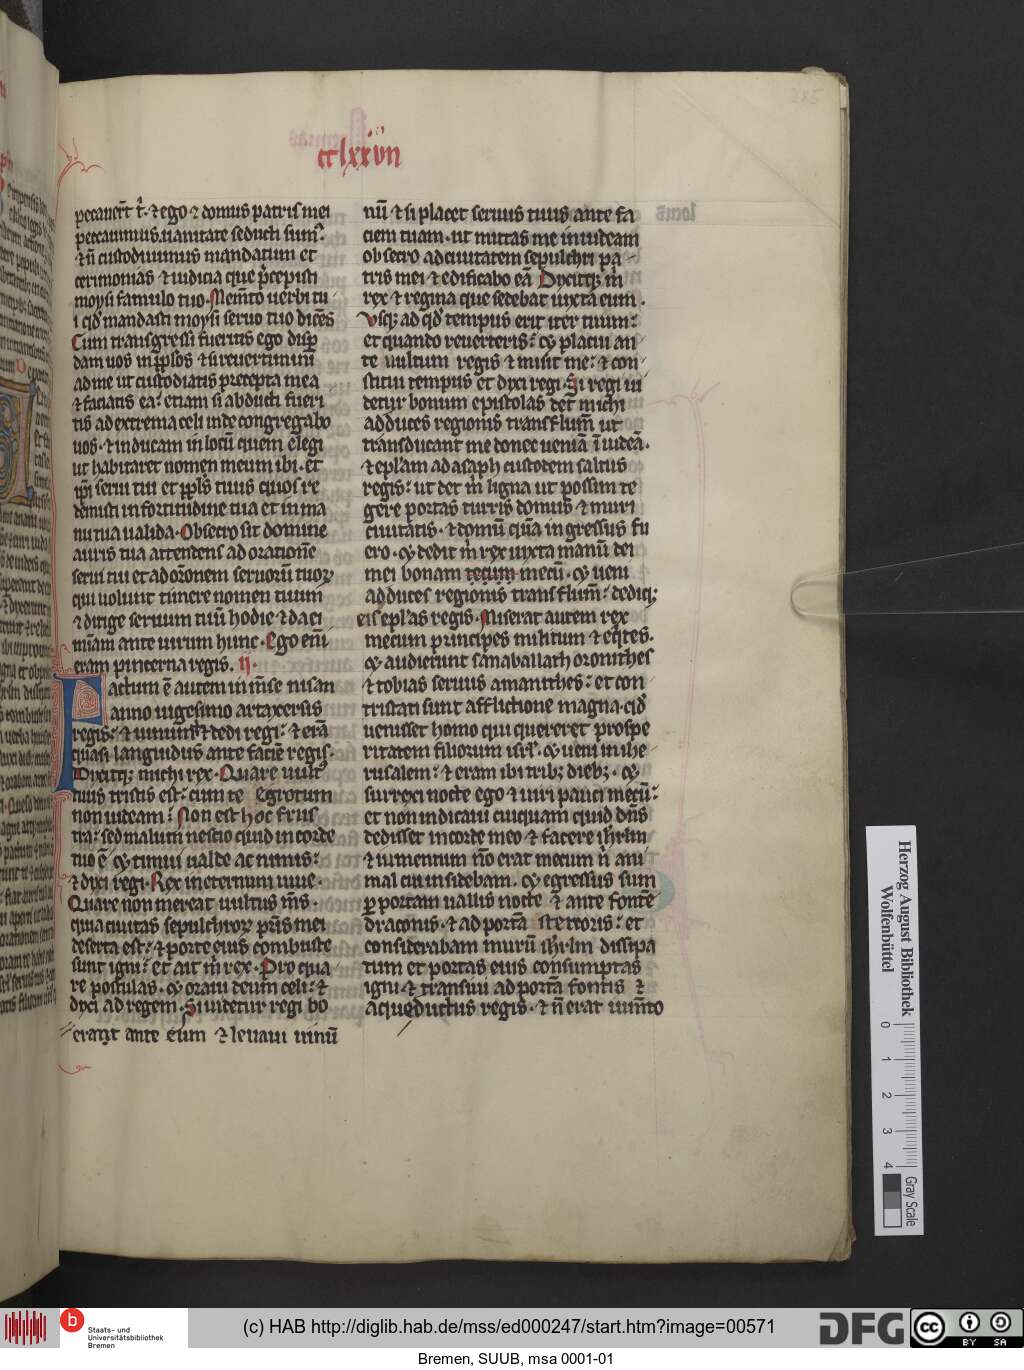 cclxxvii
peccauerūt t̄. ⁊ ego ⁊ domus patris mei
peccauimus. uanitate seducti sumꝰ.
⁊ nō custodiuimus mandatum et
cerimonias ⁊ iudicia que p̄cepisti
moysi famulo tuo. Mem̄to uerbi tu
i qd̓ mandasti moysi seruo tuo dicēs
Cum transgressi fueritis ego disꝑ
dam uos in pp̄los ⁊ si reuertimini
ad me ut custodiatis precepta mea
⁊ faciatis ea. etiam si abducti fueri
tis ad extrema celi inde congregabo
uos. ⁊ inducam in locū quem elegi
ut habitaret nomen meum ibi. et
ip̄i serui tui et pp̄ls tuus quos re
demisti in fortitudine tua et in ma
nu tua ualida. Obsecro sit domine
auris tua attendens ad orationē
serui tui et ad or̄onem seruorū tuoꝝ
qui uolunt timere nomen tuum
⁊ dirige seruum tuū hodie ⁊ da ei
mīam ante uirum hunc. Ego eni᷒
eram pincerna regis. ij.
Factum ē autem in m̄se nisan
anno uigesimo artaxersis
regis. ⁊ uinum ⁊ dedi regi. ⁊ erā
quasi languidus ante faciē regis.
Dixitqꝫ michi rex. Quare uultꝰ
tuus tristis est. cum te egrotum
non uideam. Non est hoc frus
tra. sed malum nescio quid in corde
tuo ē. ⁊ timui ualde ac nimis.
⁊ dixi regi. Rex in eternum uiue.
Quare non mereat uultus m̄s.
quia ciuitas sepulchroꝝ pr̄is mei
deserta est. ⁊ porte eius combuste
sunt igni. et ait m̄ rex. Pro qua
re postulas. ⁊ oraui deum celi. ⁊
dixi ad regem. Si uidetur regi bo
erat ante eum ⁊ leuaui uinū
nū ⁊ si placet seruus tuus ante fa
ciem tuam. ut mittas me in iudeam
obsecro ad ciuitatem sepulchri pa
tris mei ⁊ edificabo eā Dixitqꝫ m̄
rex ⁊ regina que sedebat iuxta eum.
Vsqꝫ ad qd̓ tempus erit iter tuum.
et quando reuerteris. ⁊ placui an
te uultum regis ⁊ misit me. ⁊ con
stitui tempus et dixi regi. Si regi ui
detur bonum epistolas det michi
ad duces regionis trans flum̄ ut
transducant me donec ueniā ī iudeā.
⁊ epl̄am ad asaph custodem saltus
regis. ut det m̄ ligna ut possim te
gere portas turris domus ⁊ muri
ciuitatis. ⁊ domū quā ingressus fu
ero. ⁊ dedit m̄ rex iuxta manū dei
mei bonam tecum mecū. ⁊ ueni
ad duces regionis trans flum̄. dediqꝫ
eis epl̄as regis. Miserat autem rex
mecum principes militum ⁊ eq̄tes.
⁊ audierunt sanaballath oronithes
⁊ tobias seruus amanithes. et con
tristati sunt afflictione magna. qd̓
uenisset homo qui quereret prospe
ritatem filiorum isrl̄. ⁊ ueni in ihe
rusalem. ⁊ eram ibi tribꝫ diebꝫ. ⁊
surrexi nocte ego ⁊ uiri pauci mecū.
et non indicaui cuiquam quid dn̄s
dedisset in corde meo ⁊ facere ihrlm
⁊ iumentum nō erat mecum n̄ ani
mal cui insidebam. ⁊ egressus sum
ꝑ portam uallis nocte ⁊ ante fontē
draconis. ⁊ ad portā stercoris. et
considerabam murū ihrlm dissipa
tum et portas eius consumptas
igni. ⁊ transiui ad portā fontis ⁊
aqueductus regis. ⁊ n̄ erat uiumto
Herzog August Bibliothek
Wolfenbüttel
0 1 2 3 4
Gray Scale
HAB
b Staats- und
Universitätsbibliothek
Bremen
(c) HAB http://diglib.hab.de/mss/ed000247/start.htm?image=00571
DFG
cc BY SA
Bremen, SUUB, msa 0001-01